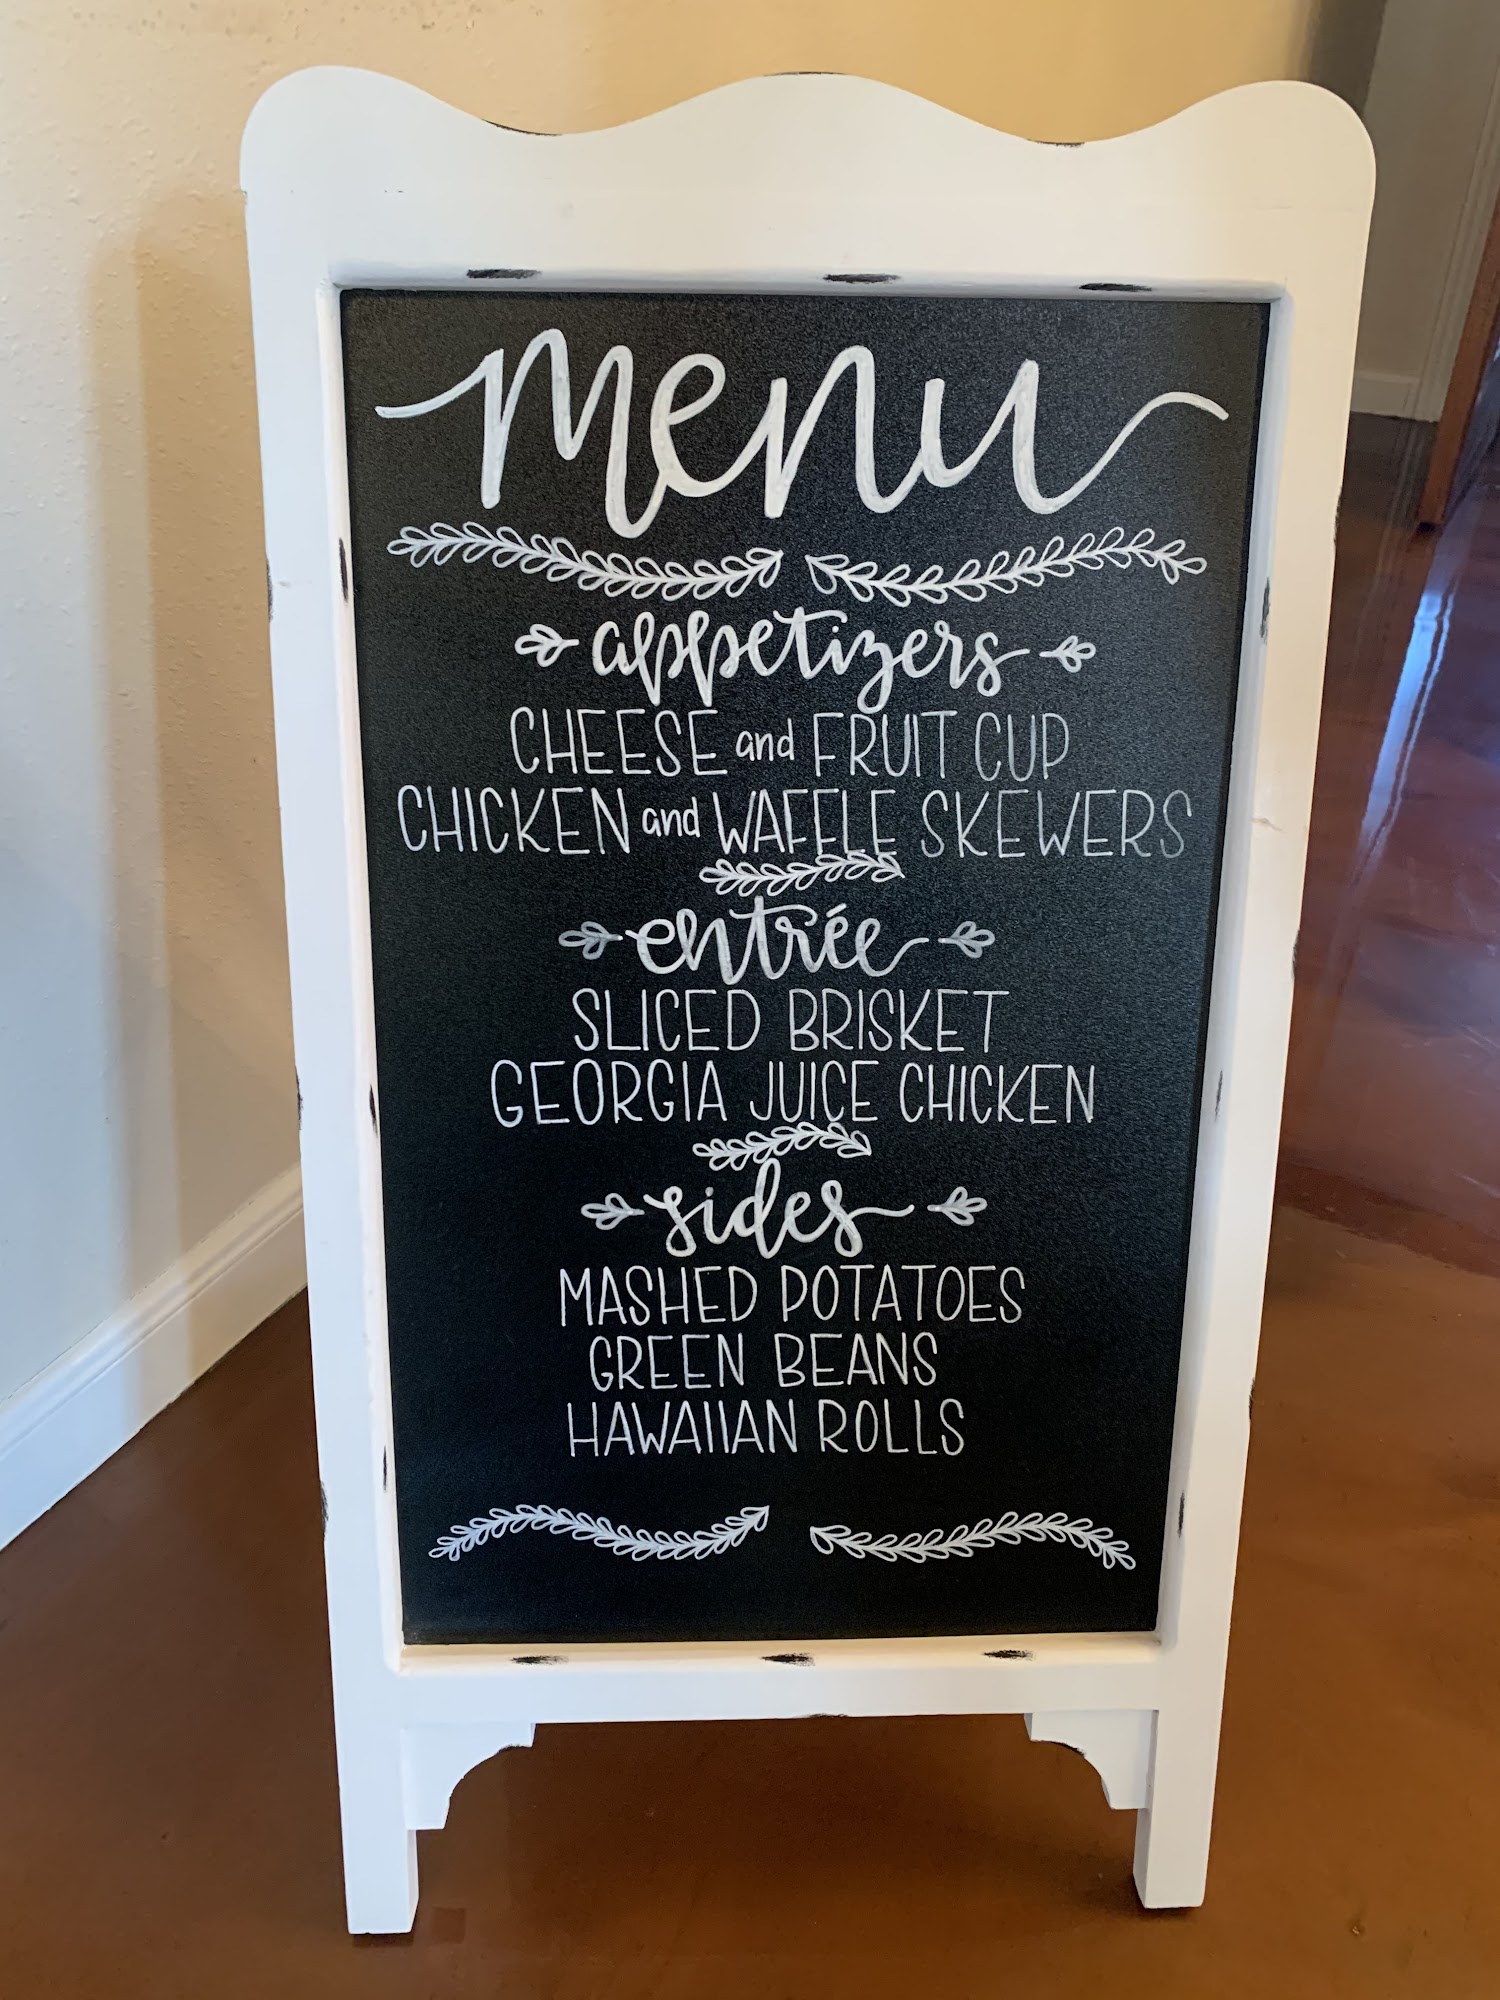 menu
appetizers
CHEESE and FRUIT CUP
CHICKEN and WAFFLE SKEWERS
entrée
SLICED BRISKET
GEORGIA JUICE CHICKEN
sides
MASHED POTATOES
GREEN BEANS
HAWAIIAN ROLLS